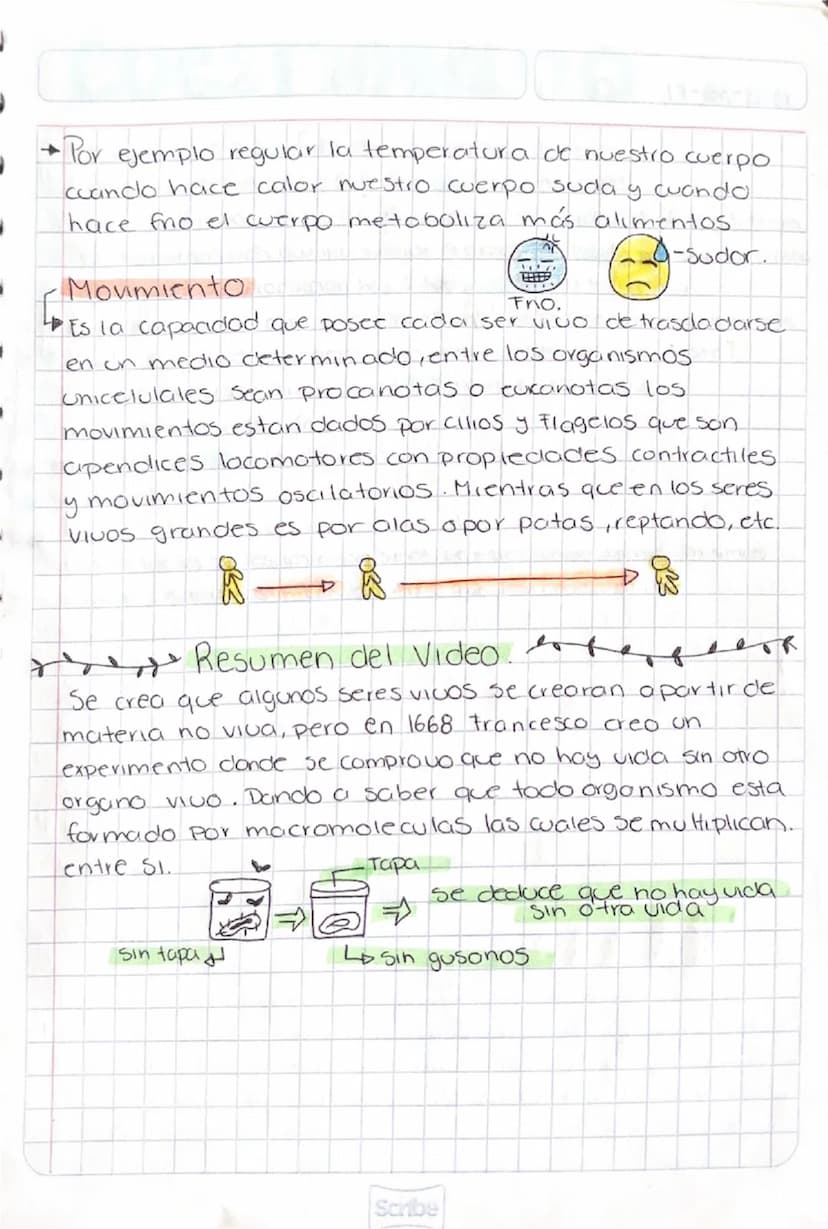 → Por ejemplo regular la temperatura de nuestro cuerpo
cuando hace calor nuestro cuerpo suda y cuando
hace frio el cuerpo metaboliza más alimentos
-sudor.
Frio.
Movimiento
↳ Es la capacidad que posee cada ser vivo de trasladarse
en un medio determinado, entre los organismos
unicelulales sean procariotas o eucariotas los
movimientos estan dados por cilios y flagelos que son
apendices locomotores con propiedades contractiles
y movimientos oscilatorios. Mientras que en los seres
vivos grandes es por alas o por patas, reptando, etc.
Resumen del Video.
Se crea que algunos seres vivos se crearan a partir de
materia no viva, pero en 1668 francesco creo un
experimento donde se comprovo que no hay vida sin otro
organo vivo. Dando a saber que todo organismo esta
formado por macromoleculas las cuales se multiplican.
entre si.
Tapa
⇒ ⇒ se deduce que no hay vida
sin otra vida
sin tapa ↲ ↳ sin gusanos
Scribe